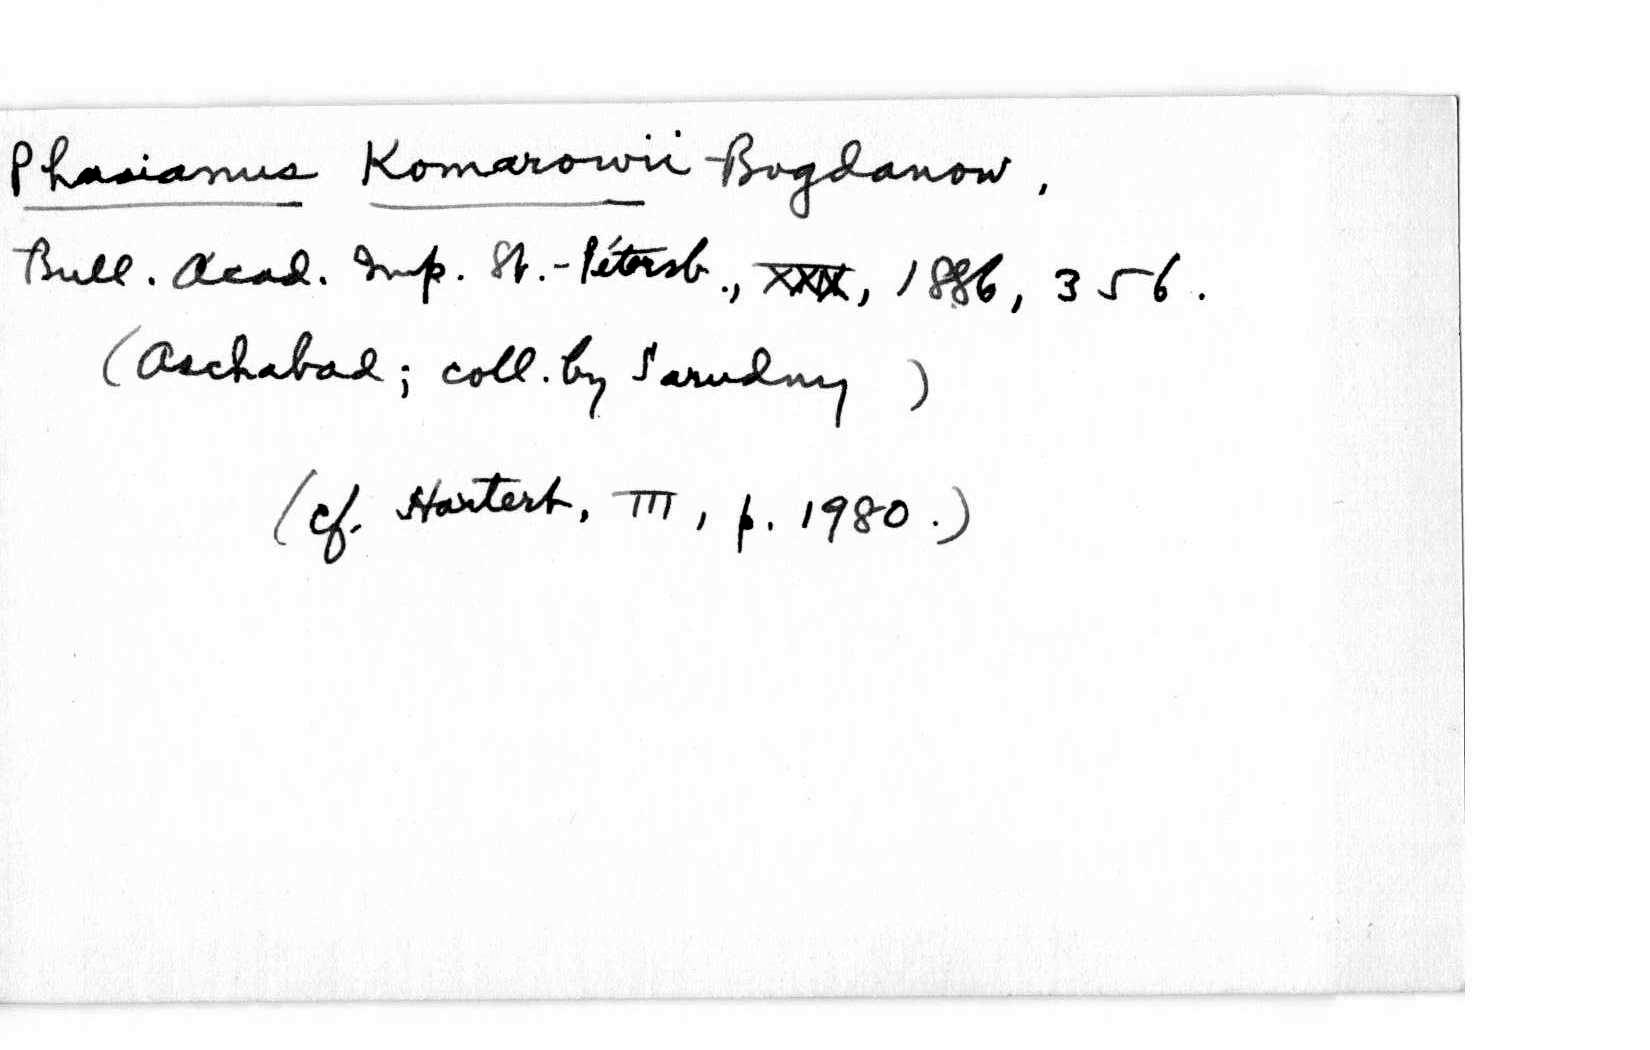 Phasianus Komarowii Bogdanow,
Bull. Acad. Imp. St.-Pétersb., XXX, 1886, 356.
(Aschabad; coll. by Sarudny )
(cf. Hartert, III, p. 1980.)